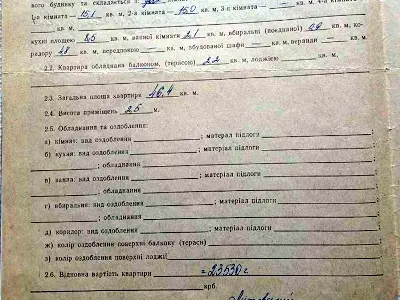 вого будинку та складається з
1-а кімната — 15,1 кв. м, 2-а кімната — 15,0 кв. м, 3-я кімната — кв. м, 4-а кімната
— кв. м,
кухні площею 8,5 кв. м, ванної кімнати 2,1 кв. м, вбиральні (поєднаної) 0,9 кв. м, ко-
ридору 4,8 кв. м, передпокою — кв. м, вбудованої шафи — кв. м, веранди — кв. м.
2.2. Квартира обладнана балконом, (терасою) 2,2 кв. м, лоджією — кв. м.
2.3. Загальна площа квартири 46,4 кв. м.
2.4. Висота приміщень 2,5 м.
2.5. Обладнання та оздоблення:
а) кімнати: вид оздоблення ; матеріал підлоги
б) кухня: вид оздоблення ; матеріал підлоги
; обладнання
в) ванна: вид оздоблення ; матеріал підлоги
; обладнання
г) вбиральня: вид оздоблення ; матеріал підлоги
; обладнання
д) коридор: вид оздоблення ; матеріал підлоги
ж) колір оздоблення поверхні балкону (тераси)
з) колір оздоблення поверхні лоджії
2.6. Відновна вартість квартири = 23530 =
крб.